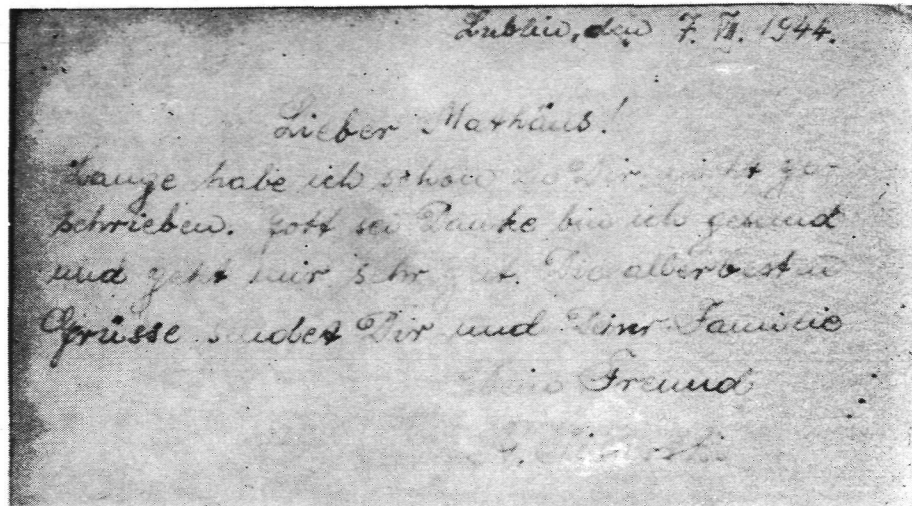 Lublin, den 7. III. 1944.
Lieber Mathäus!
Lange habe ich schon zu Dir nicht ge-
schrieben. Gott sei Danke bin ich gesund
und geht mir sehr gut. Die allerbesten
Grüsse sendet Dir und Deiner Familie
Dein Freund